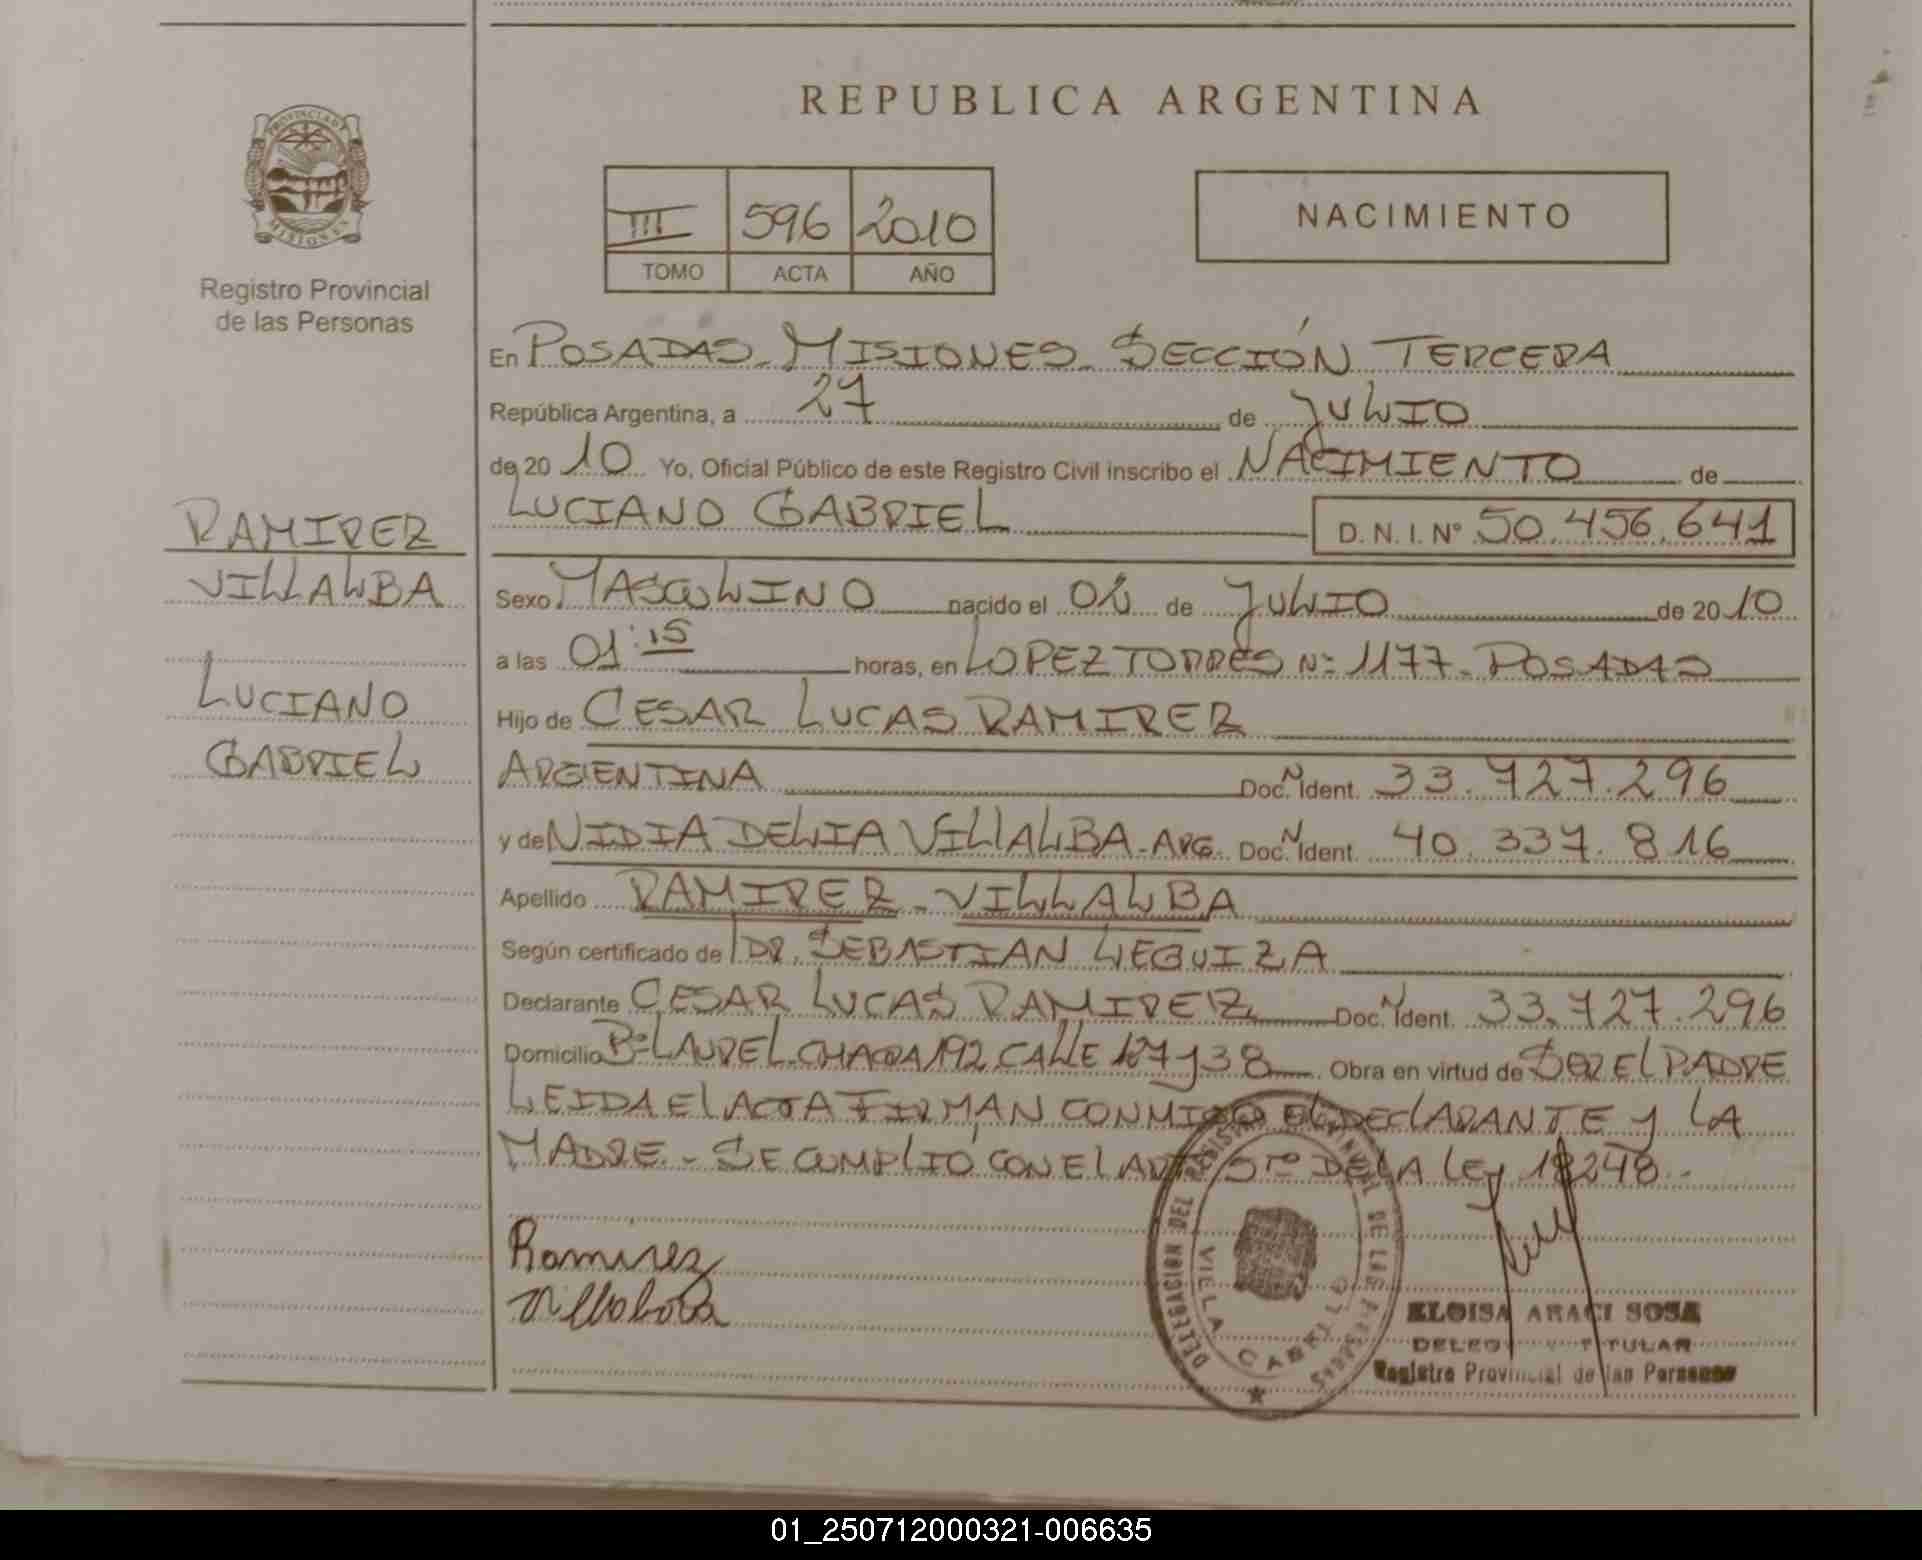 REPUBLICA ARGENTINA
PROVINCIA DE
MISIONES
Registro Provincial
de las Personas
III 596 2010
TOMO ACTA AÑO
NACIMIENTO
En POSADAS - MISIONES - SECCIÓN TERCERA
República Argentina, a 27 de JULIO
de 20 10 Yo, Oficial Público de este Registro Civil inscribo el NACIMIENTO de
LUCIANO GABRIEL D. N. I. Nº 50.456.641
RAMIREZ
VILLALBA
LUCIANO
GABRIEL
Sexo MASCULINO nacido el 02 de JULIO de 20 10
a las 01:15 horas, en LOPEZ TORRES Nº 1177 - POSADAS
Hijo de CESAR LUCAS RAMIREZ
ARGENTINA Doc. N Ident. 33.727.296
y de NIDIA DELIA VILLALBA - ARG. Doc. N Ident. 40.337.816
Apellido RAMIREZ - VILLALBA
Según certificado de DR. SEBASTIAN LEGUIZA
Declarante CESAR LUCAS RAMIREZ Doc. N Ident. 33.727.296
Domicilio Bº LAUREL - CHACRA 192 CALLE 127 y 38 Obra en virtud de SER EL PADRE
LEIDA El ACTA FIRMAN CONMIGO EL DECLARANTE y LA
MADRE - SE CUMPLIO CON El ART 5to DE LA LEY 18248 -
Ramirez
Villalba
DELEGACION DEL REGISTRO PROVINCIAL DE LAS PERSONAS
VILLA CABELLO
ELOISA ARACI SOSA
TITULAR
Registro Provincial de las Personas
01_250712000321-006635